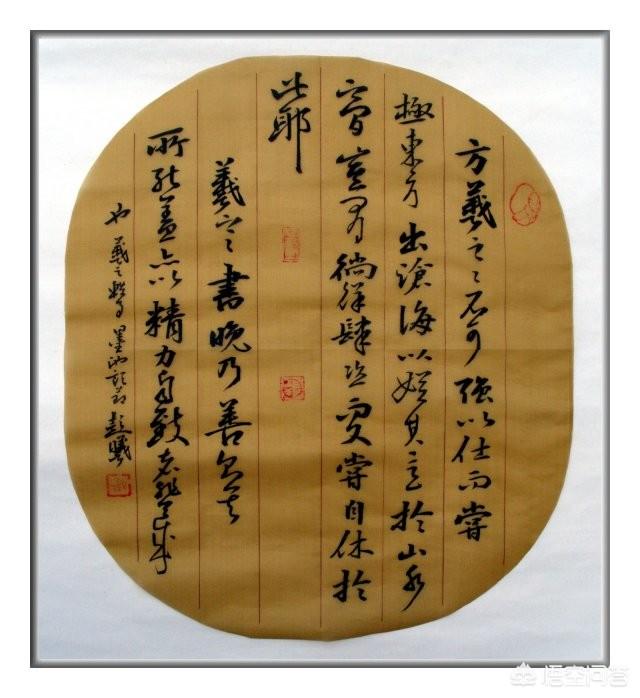 方羲之之不可強以仕而嘗
極東方出滄海以娛其意於山水
間豈有徜徉肆恣又嘗自休於
此耶
羲之之書晚乃善則其
所能蓋亦以精力自致者非天成
也 羲之 墨池記
悟空问答